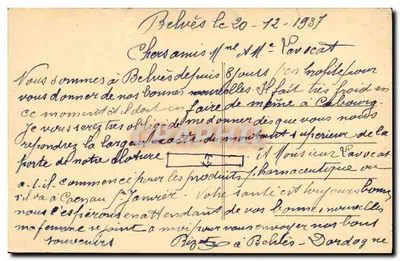 Belvés le 20-12-1937
Chers amis Mme & Mr Lavocat
Nous sommes à Belvès depuis 8 jours j'en profite pour
vous donner de nos bonnes nouvelles. Il fait très froid en
ce moment et il doit en faire de même à Cabourg.
Je vous serez très obligé de me donner des que vous nous
repondrez la longueur exacte du montant supérieur de la
porte de notre cloture et Monsieur Lavocat
a-t-il commencé pour les produits pharmaceutique ou
s'il va à 1er Janvier. Votre santé est toujours bonne
nous l'espérons en attendant de vos bonnes nouvelles
ma femme se joint à moi pour vous envoyer nos bons
souvenirs à Belvès-Dordogne